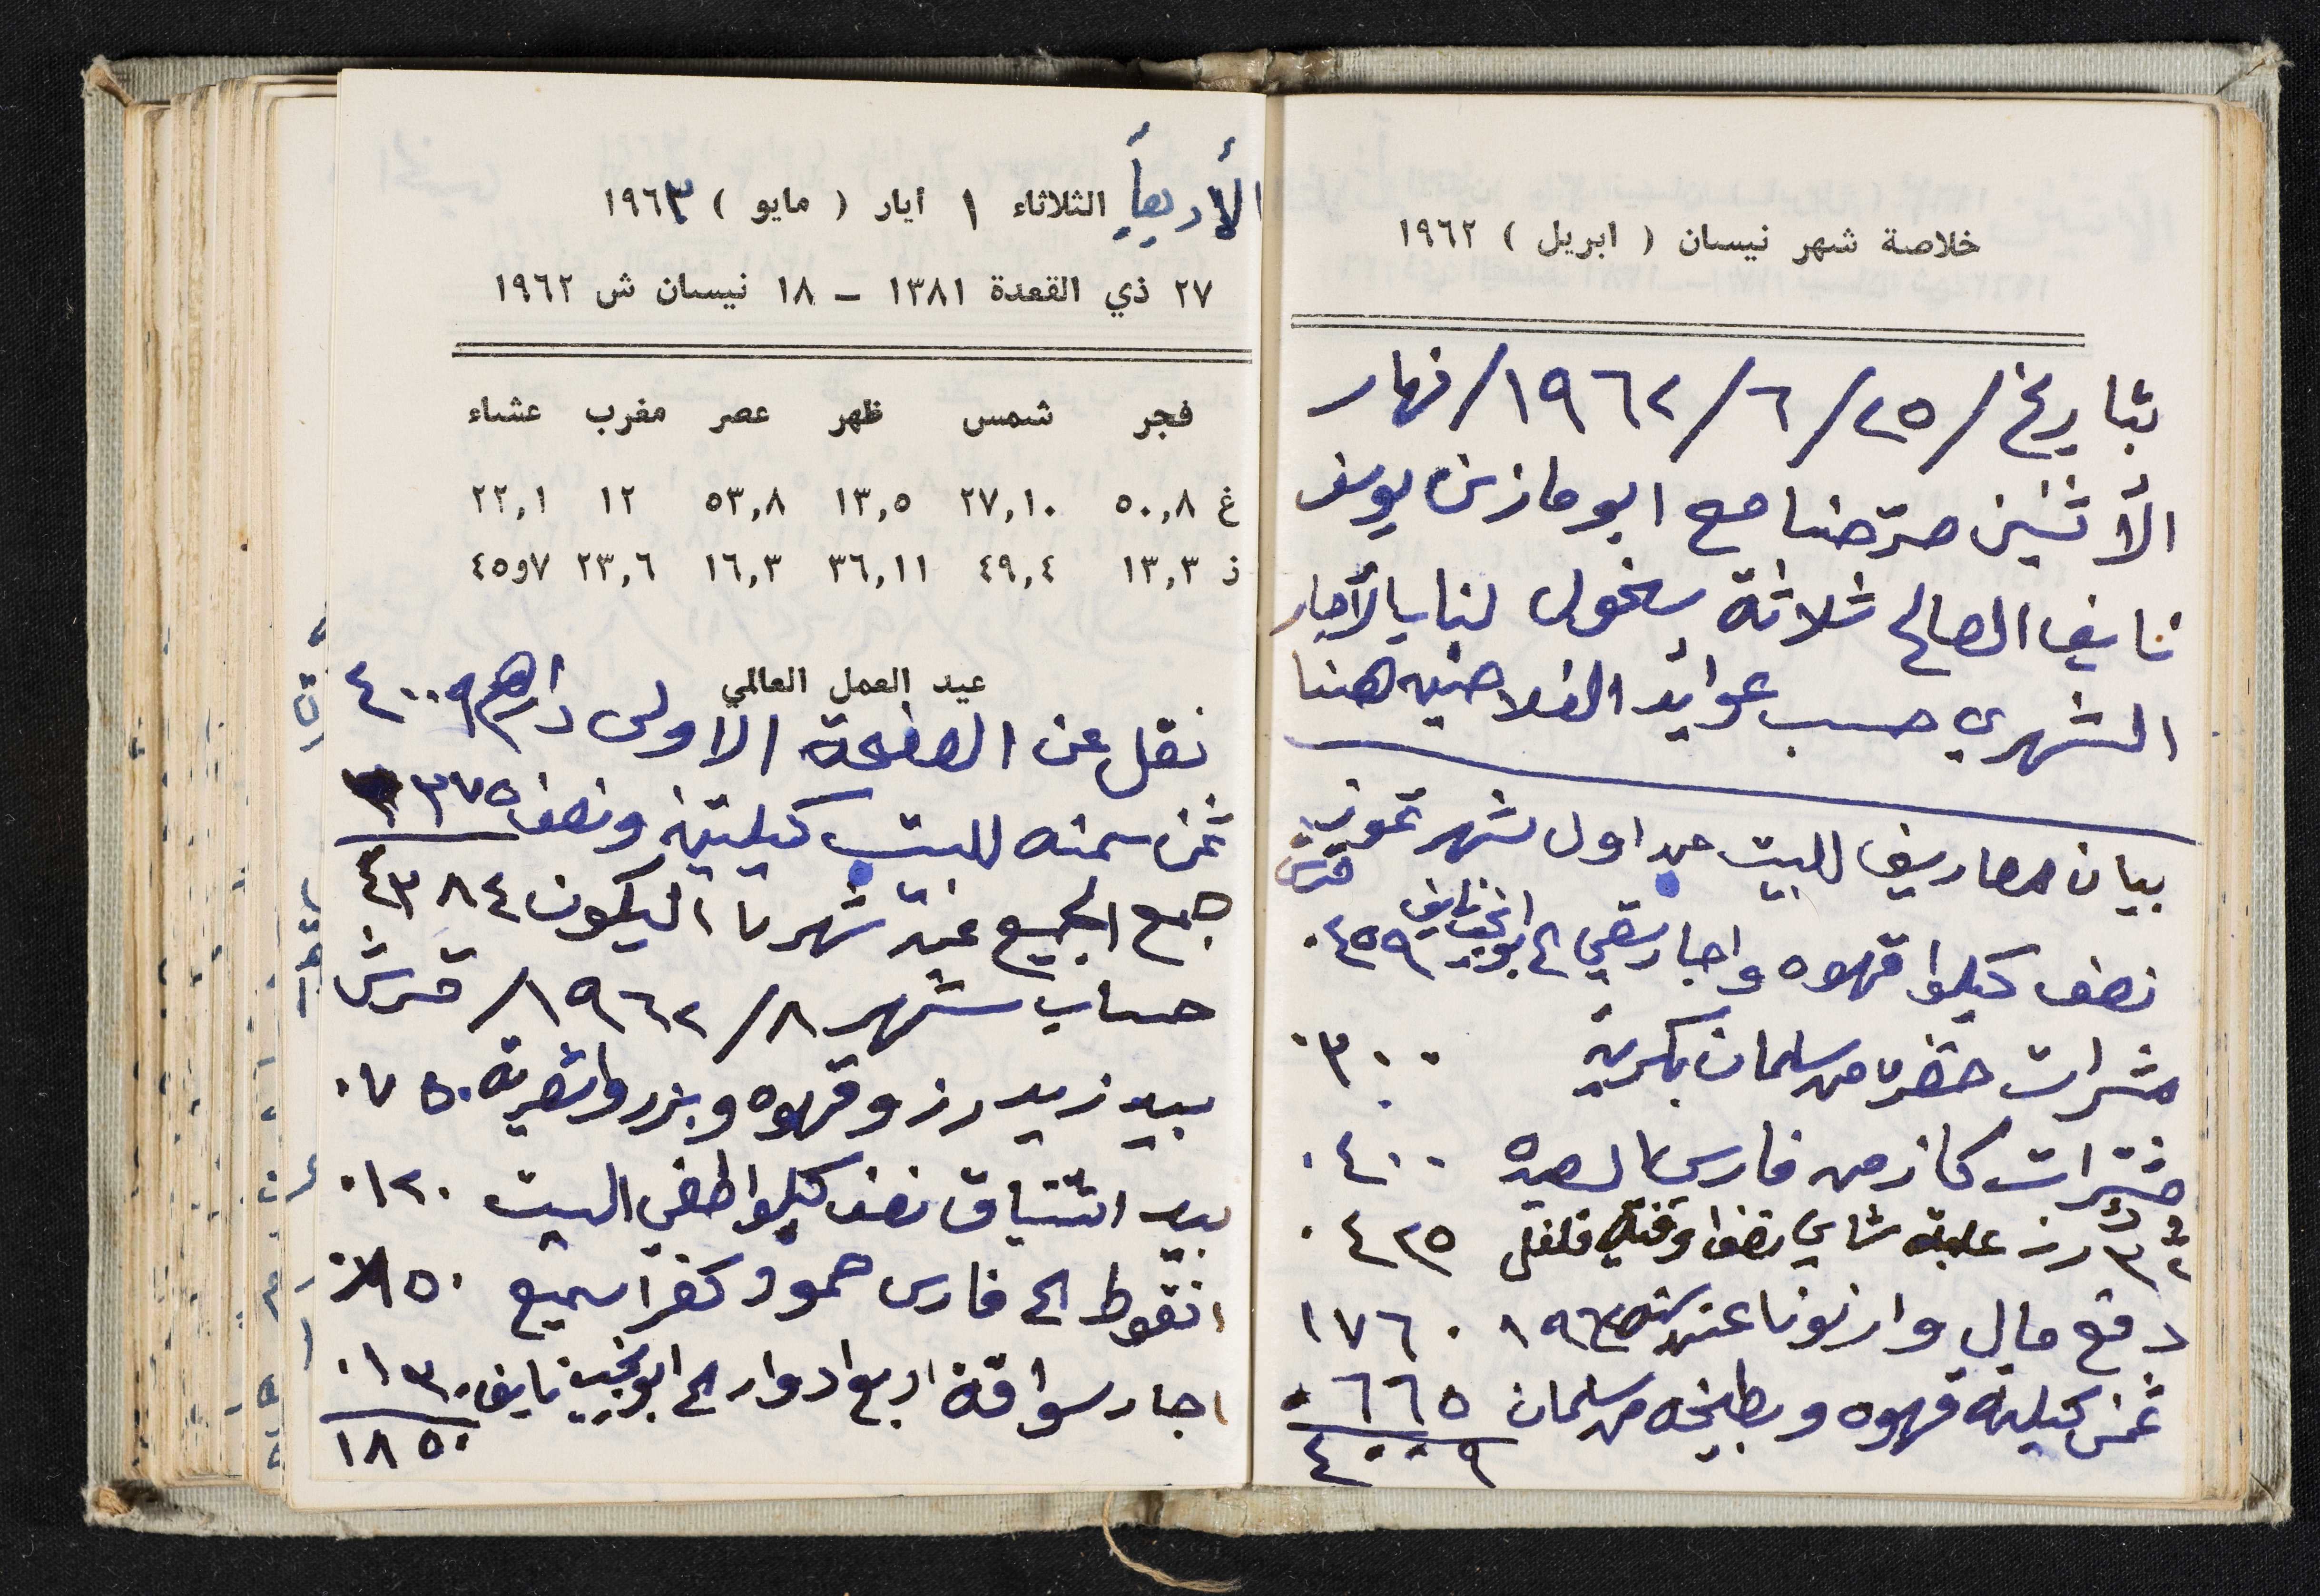 خلاصة شهر نيسان ( ابريل ) ١٩٦٢
بتاريخ / ٢٥ / ٦ / ١٩٦٢ / نهار
الأثنين صرّحنا مع ابو مازن يوسف
نايف الصالح ثلاثة سخول لنا بالأجار
الشهري حسب عوايد الفلاحيه هنا
بيان مصاريف للبيت من اول شهر تموز
قرش
نصف كيلوا قهوه واجار سقي الى ابو نجيب نايف ٠٤٥٩
مشرات خضره من سلمان بكريه ٠٣٠٠
مشترات كاز من فارس ٠٤٠٠
رز علبة شاي نصف اوقية فلفل ٠٤٢٥
دفع مال وارنونا عن سنة ١٩٦٢ ١٧٦٠
ثمن كيلة قهوه وبطيخه من سلمان ٠٦٦٥
٤٠٠٩
الأربعاً الثلاثاء ١ أيار ( مايو ) ١٩٦٣
٢٧ ذي القعدة ١٣٨١ – ١٨ نيسان ش ١٩٦٢
فجر شمس ظهر عصر مغرب عشاء
غ ٥٠,٨ ٢٧,١٠ ١٣,٥ ٥٣,٨ ١٢ ٢٢,١
ذ ١٣,٣ ٤٩,٤ ٣٦,١١ ١٦,٣ ٢٣,٦ ٧و٤٥
عيد العمل العالمي
نقل عن الصفحة الاولى ٤٠٠٩
ثمن سمنه للبيت كيلتين ونصف ٣٧٥
جمع الجميع عن شهر ٧ اليكون ٤٣٨٤
حساب شهر ٨ / ١٩٦٢ / قرش
بيد زيد رز وقهوه وبزر وشعريه ٠٧٥٠
بيد اشتياق نصف كيلوا طفي البيت ٠١٢٠
انقوط الى فارس حمود كفر اسميع ٨٥٠
اجار سواقة اربع ادوار الى ابو نجيب نايف ٠١٣٠
١٨٥٠